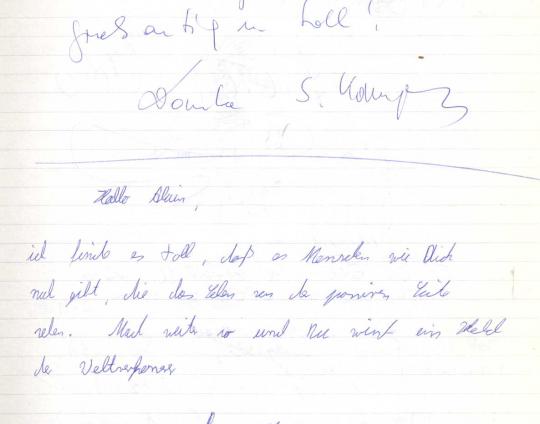 großartig un toll!
Danke S.
Hallo Alain,
ich finde es toll, daß es Menschen wie Dich
noch gibt, die das Leben von der positiven Seite
sehen. Mach weiter so und Du wirst ein Held
der